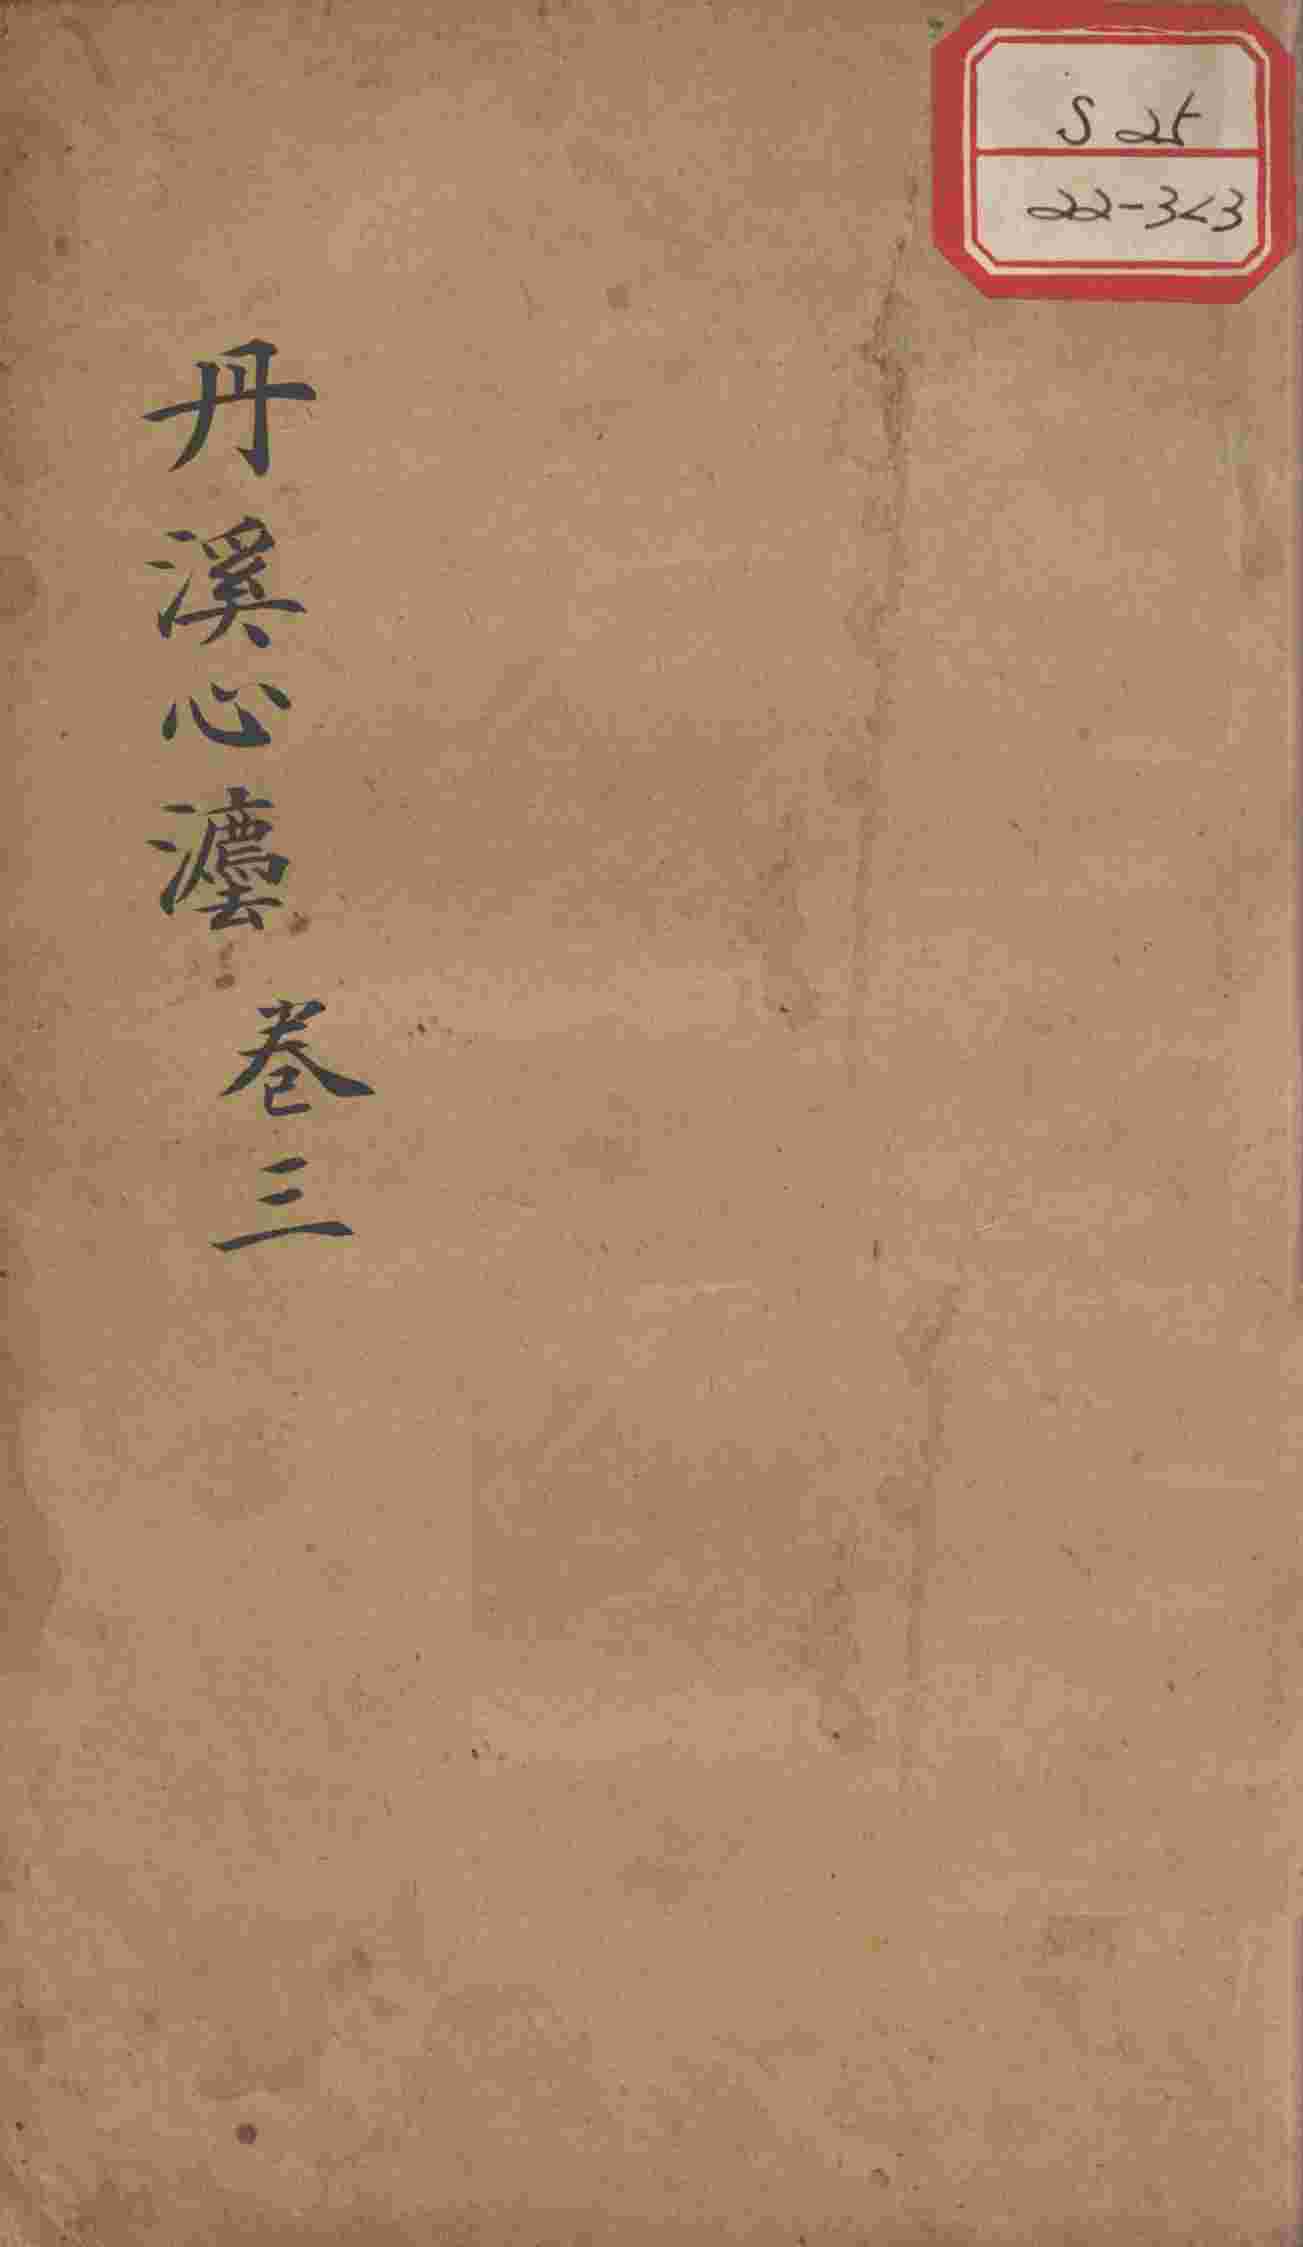 S25
22-3<3
丹溪心灋
卷三